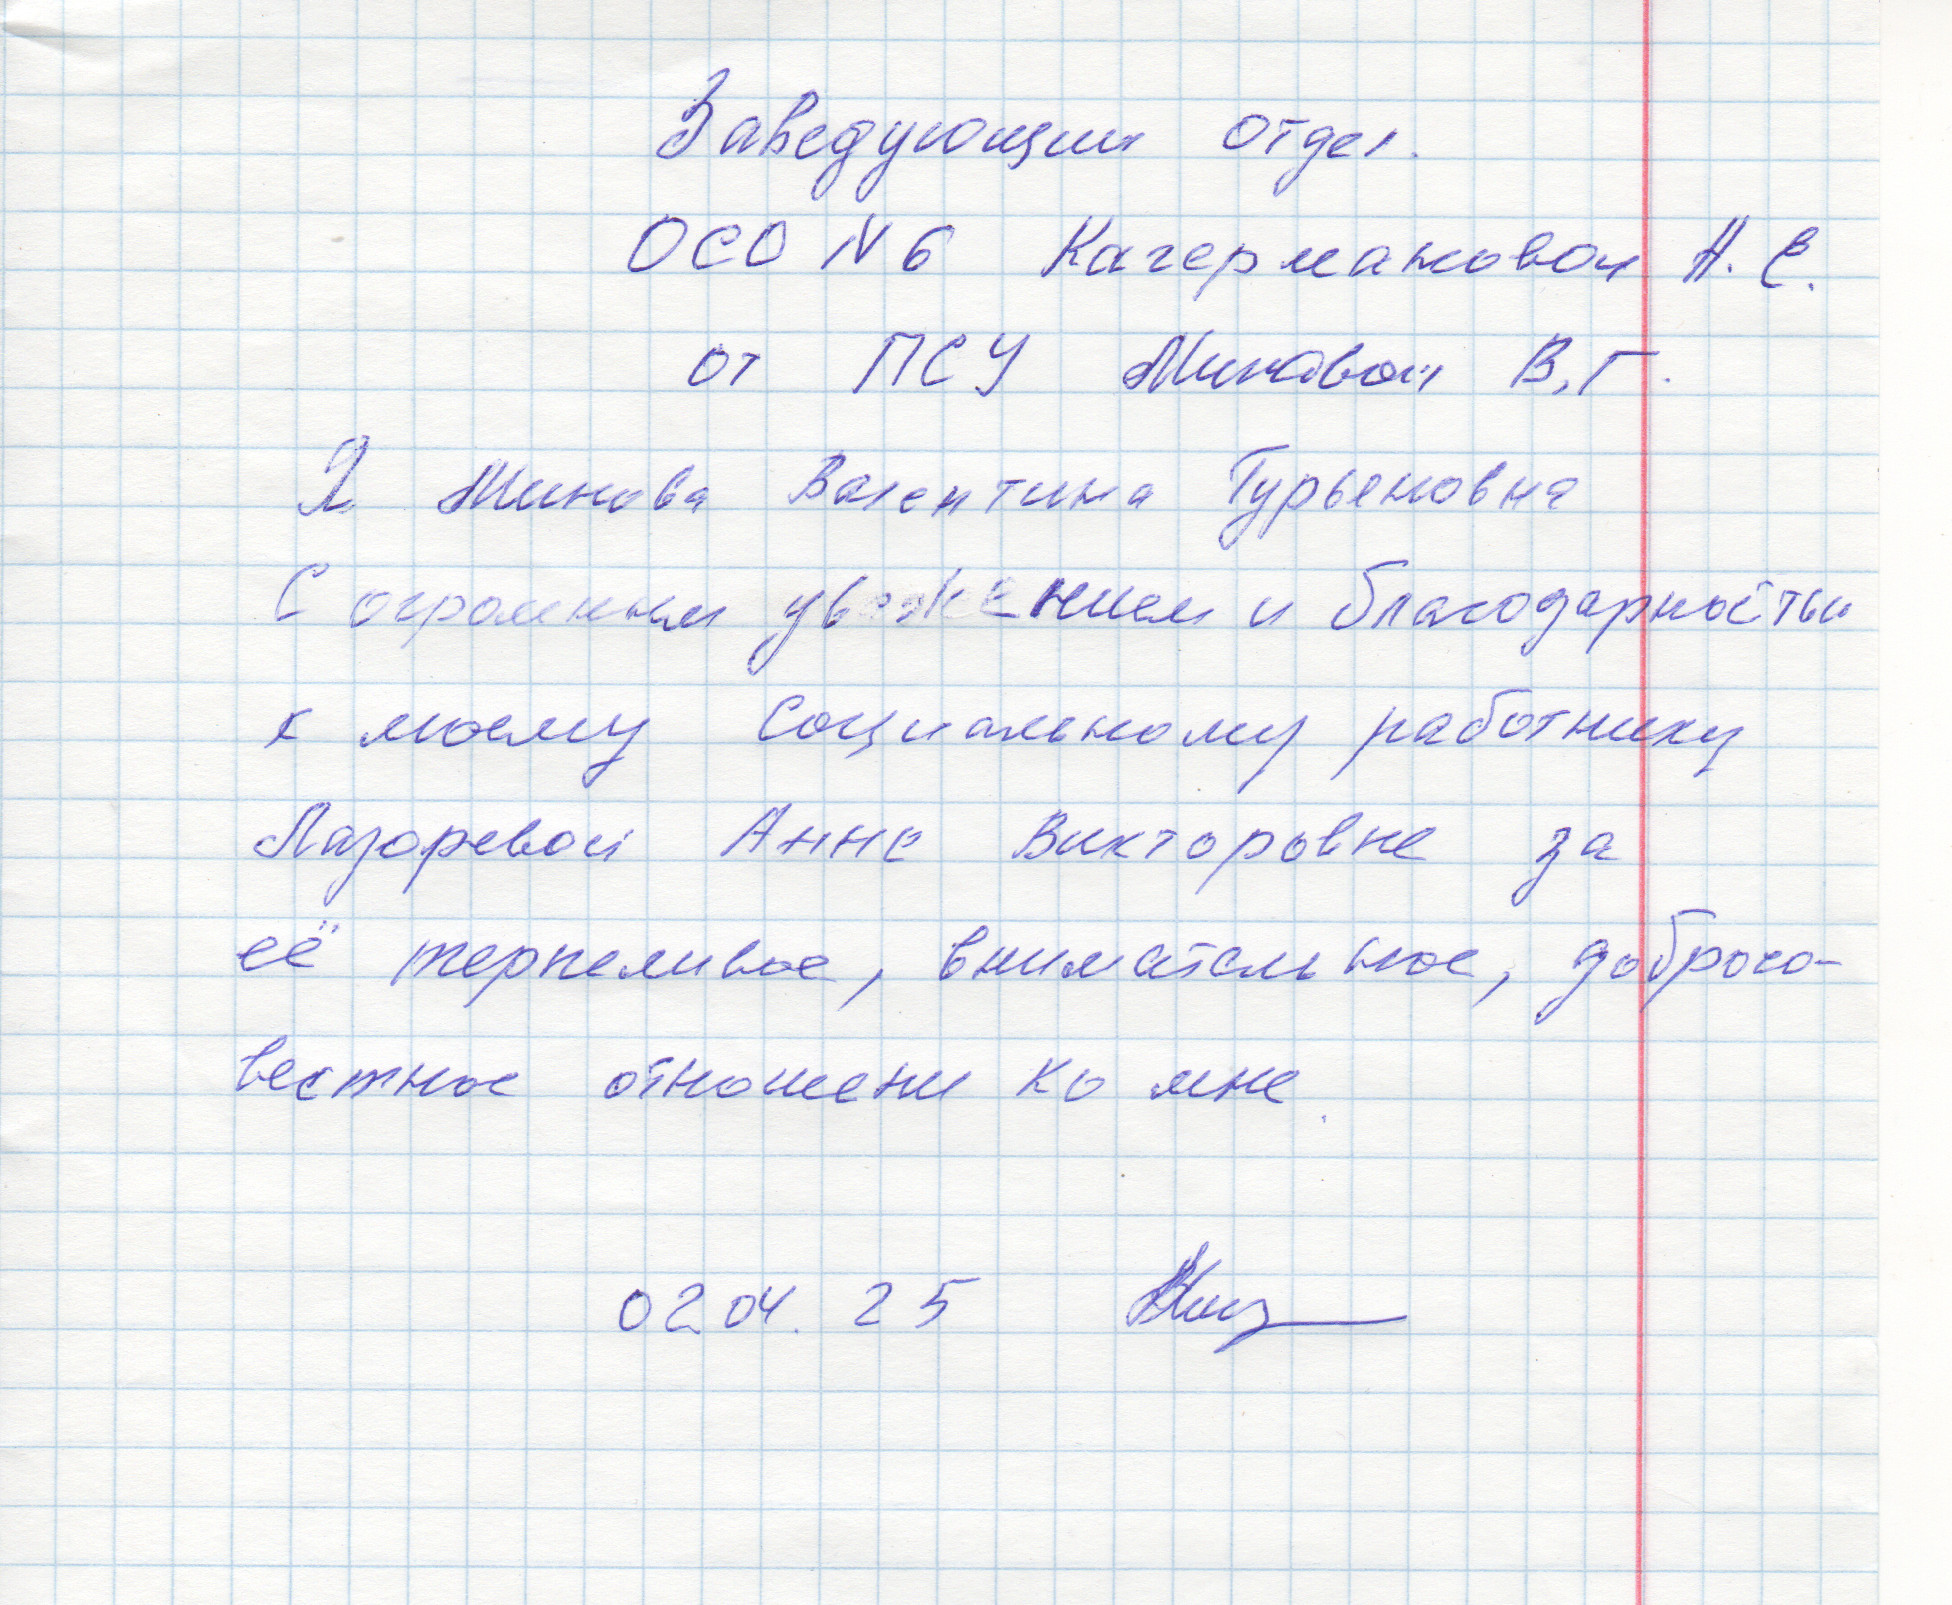 Заведующий отдел.
ОСО N 6 Кагермановой А. С.
от ПСУ Миновой В.Г.
Я Минова Валентина Гурьяновна
С огромным уважением и благодарностью
к моему социальному работнику
Лазоревой Анне Викторовне за
её терпеливое, внимательное, добросо-
вестное отношени ко мне.
02 04. 25